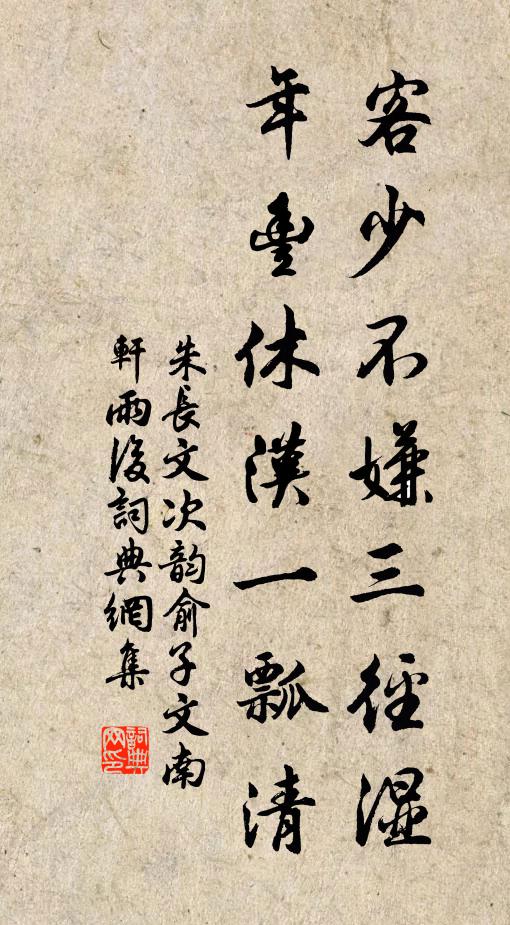 客少不嫌三徑湿
年豊休漢一瓢清
朱長文次韵俞子文南
軒雨後詞典網集
詞典
网印